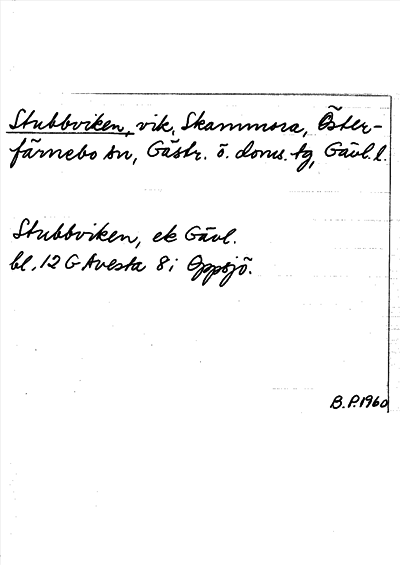 Stubbviken, vik, Skammora, Öster-
färnebo sn, Gästr. ö. doms. tg, Gävl. l.
Stubbviken, ek Gävl.
bl. 12 G Avesta 8 i Oppsjö.
B.P. 1960